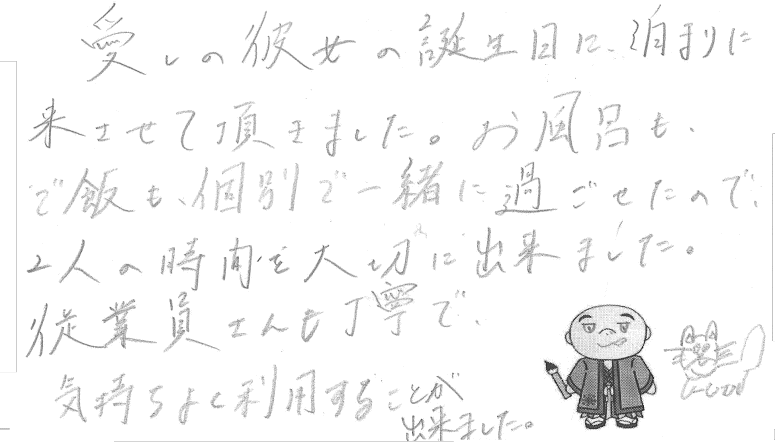 愛しの彼女の誕生日に、泊まりに
来させて頂きました。お風呂も、
ご飯も、個別で一緒に過ごせたので、
2人の時間を大切に出来ました。
従業員さんも丁寧で、
気持ちよく利用することが
出来ました。